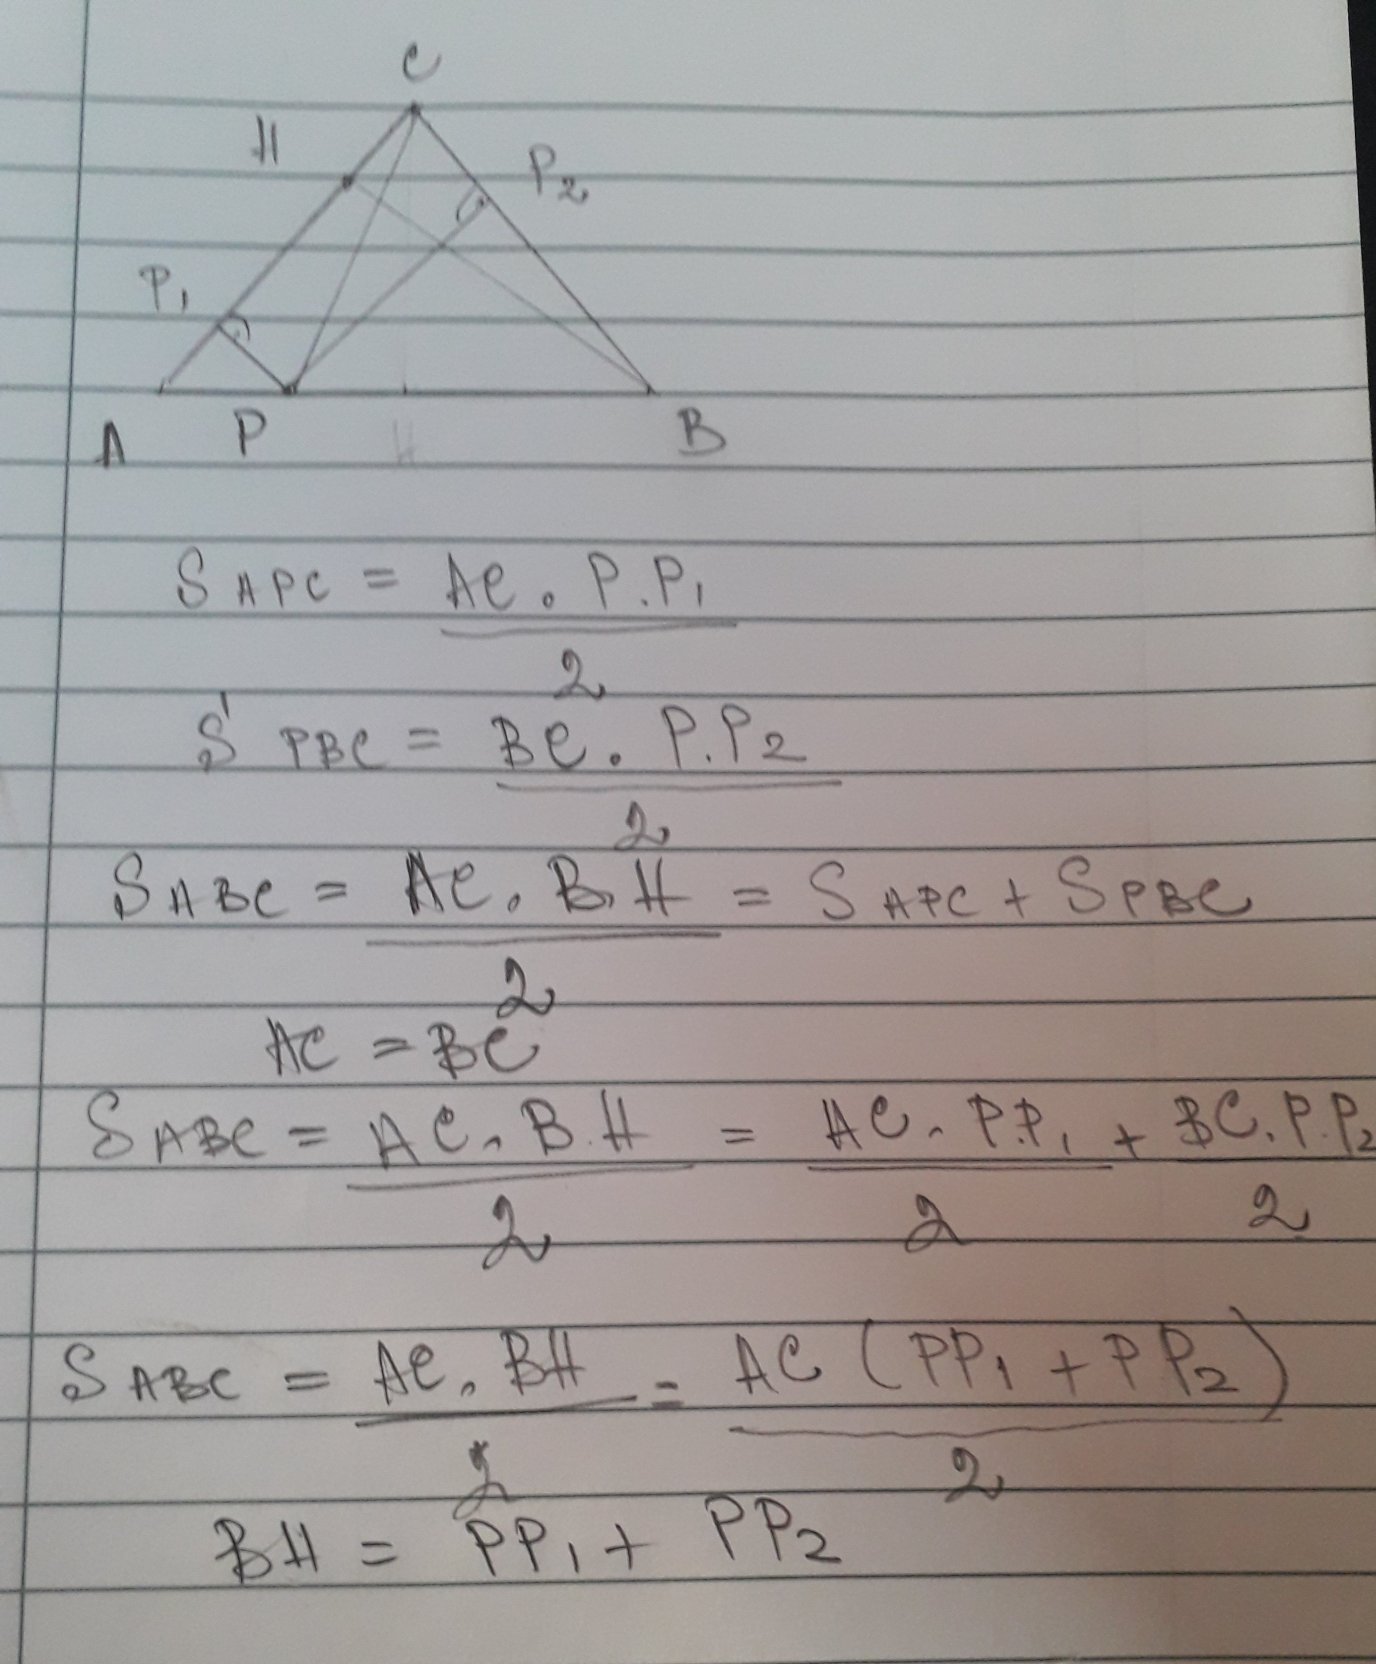 C
H
P2
P1
A P H B
S APC = AC . P.P1
2
S' PBC = BC . P.P2
2
S ABC = AC . B.H = S APC + S PBC
2
AC = BC
S ABC = AC . B.H = AC . P.P1 + BC . P.P2
2 2 2
S ABC = AC . BH = AC (PP1 + PP2)
2 2
BH = PP1 + PP2